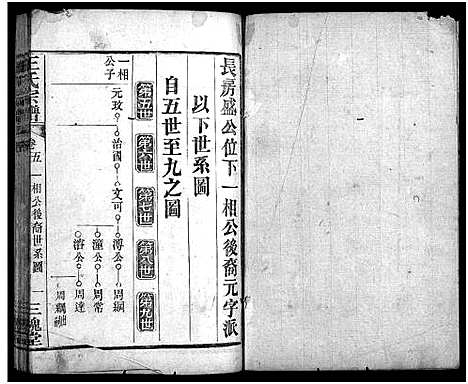 長房盛公位下一相公後裔元字派
以下世系圖
自五世至九之圖
第五世
第六世
第七世
第八世
第九世
一相公子
元玫
治國
文可
溥公
周綱
潼公
周常
溶公
周達
王氏宗譜
卷五
一相公後裔世系圖
一
三槐堂